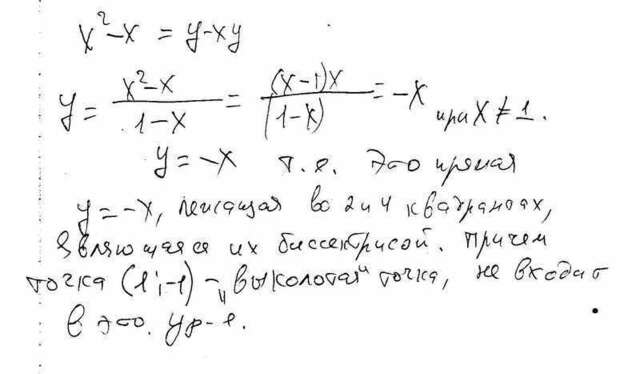 x² - x = y - xy
y = (x² - x)/(1 - x) = ((x-1)x)/(1-x) = -x при x ≠ 1.
y = -x т.е. это прямая
y = -x, лежащая во 2 и 4 квадрантах,
являющаяся их биссектрисой. Причем
точка (1; -1) - "выколотая" точка, не входит
в это. ур-е.